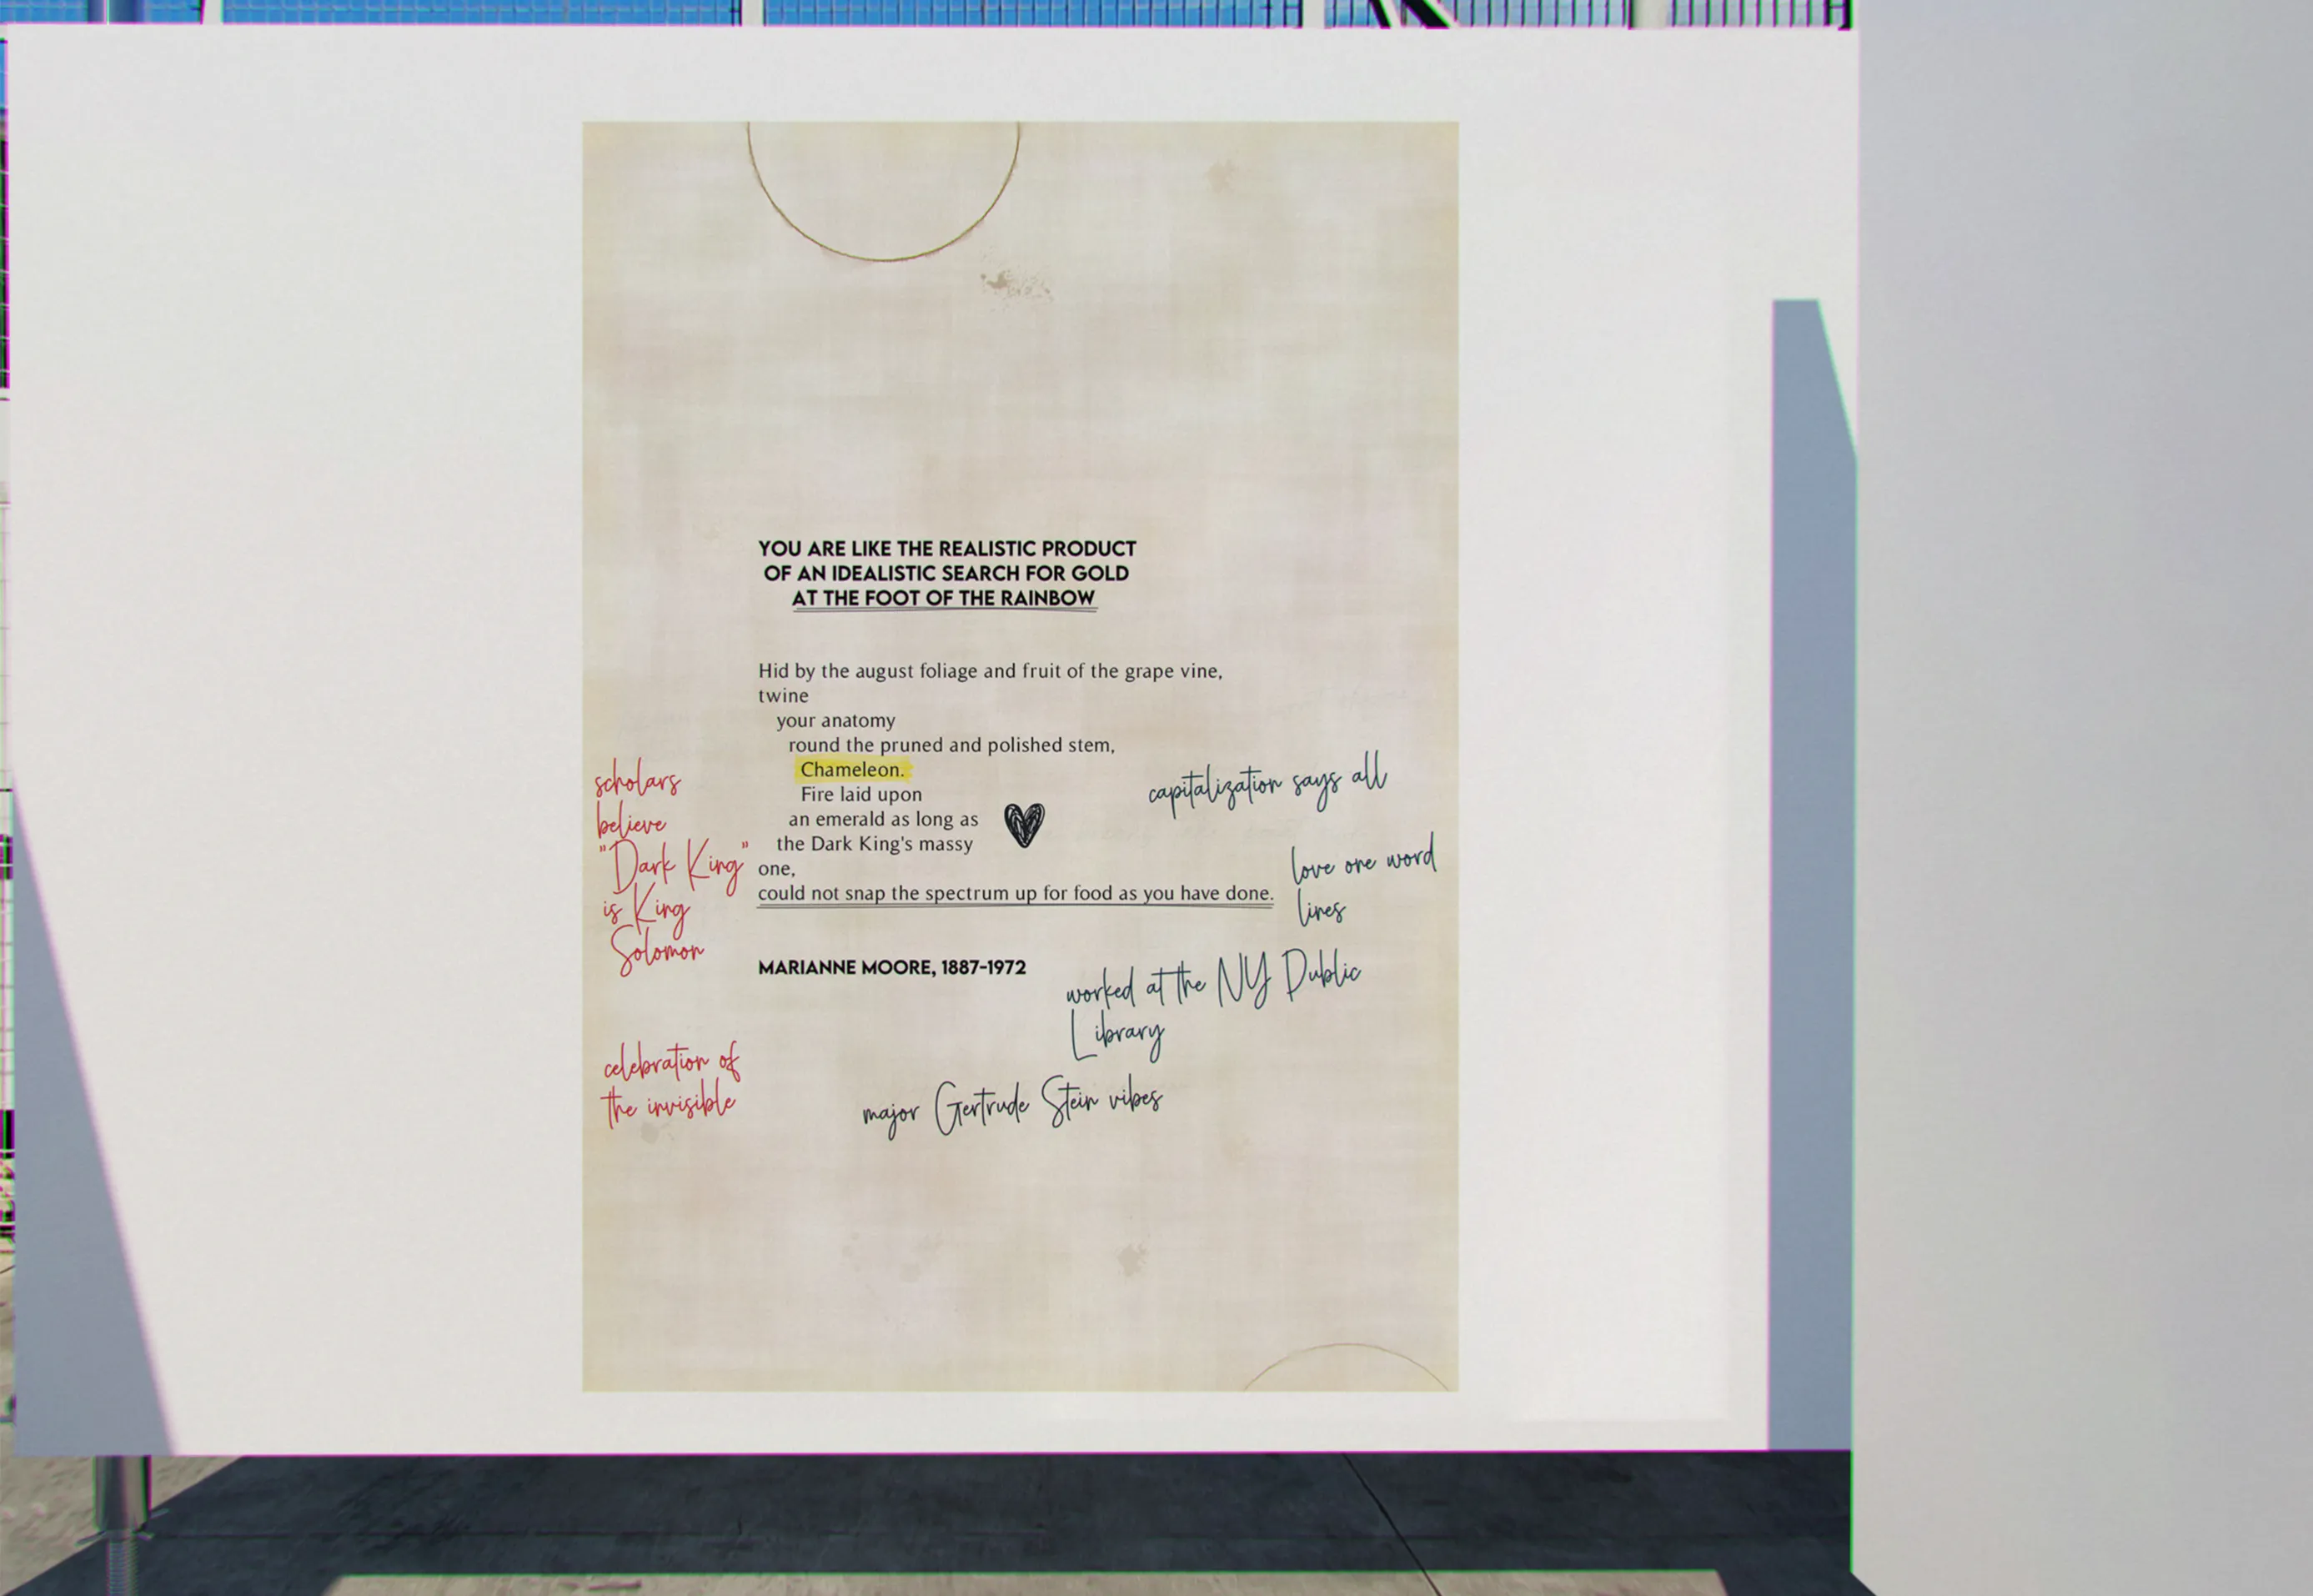 YOU ARE LIKE THE REALISTIC PRODUCT
OF AN IDEALISTIC SEARCH FOR GOLD
AT THE FOOT OF THE RAINBOW
Hid by the august foliage and fruit of the grape vine,
twine
your anatomy
round the pruned and polished stem,
Chameleon.
Fire laid upon
an emerald as long as
the Dark King's massy
one,
could not snap the spectrum up for food as you have done.
MARIANNE MOORE, 1887-1972
scholars
believe
"Dark King"
is King
Solomon
celebration of
the invisible
capitalization says all
love one word
lines
worked at the NY Public
Library
major Gertrude Stein vibes